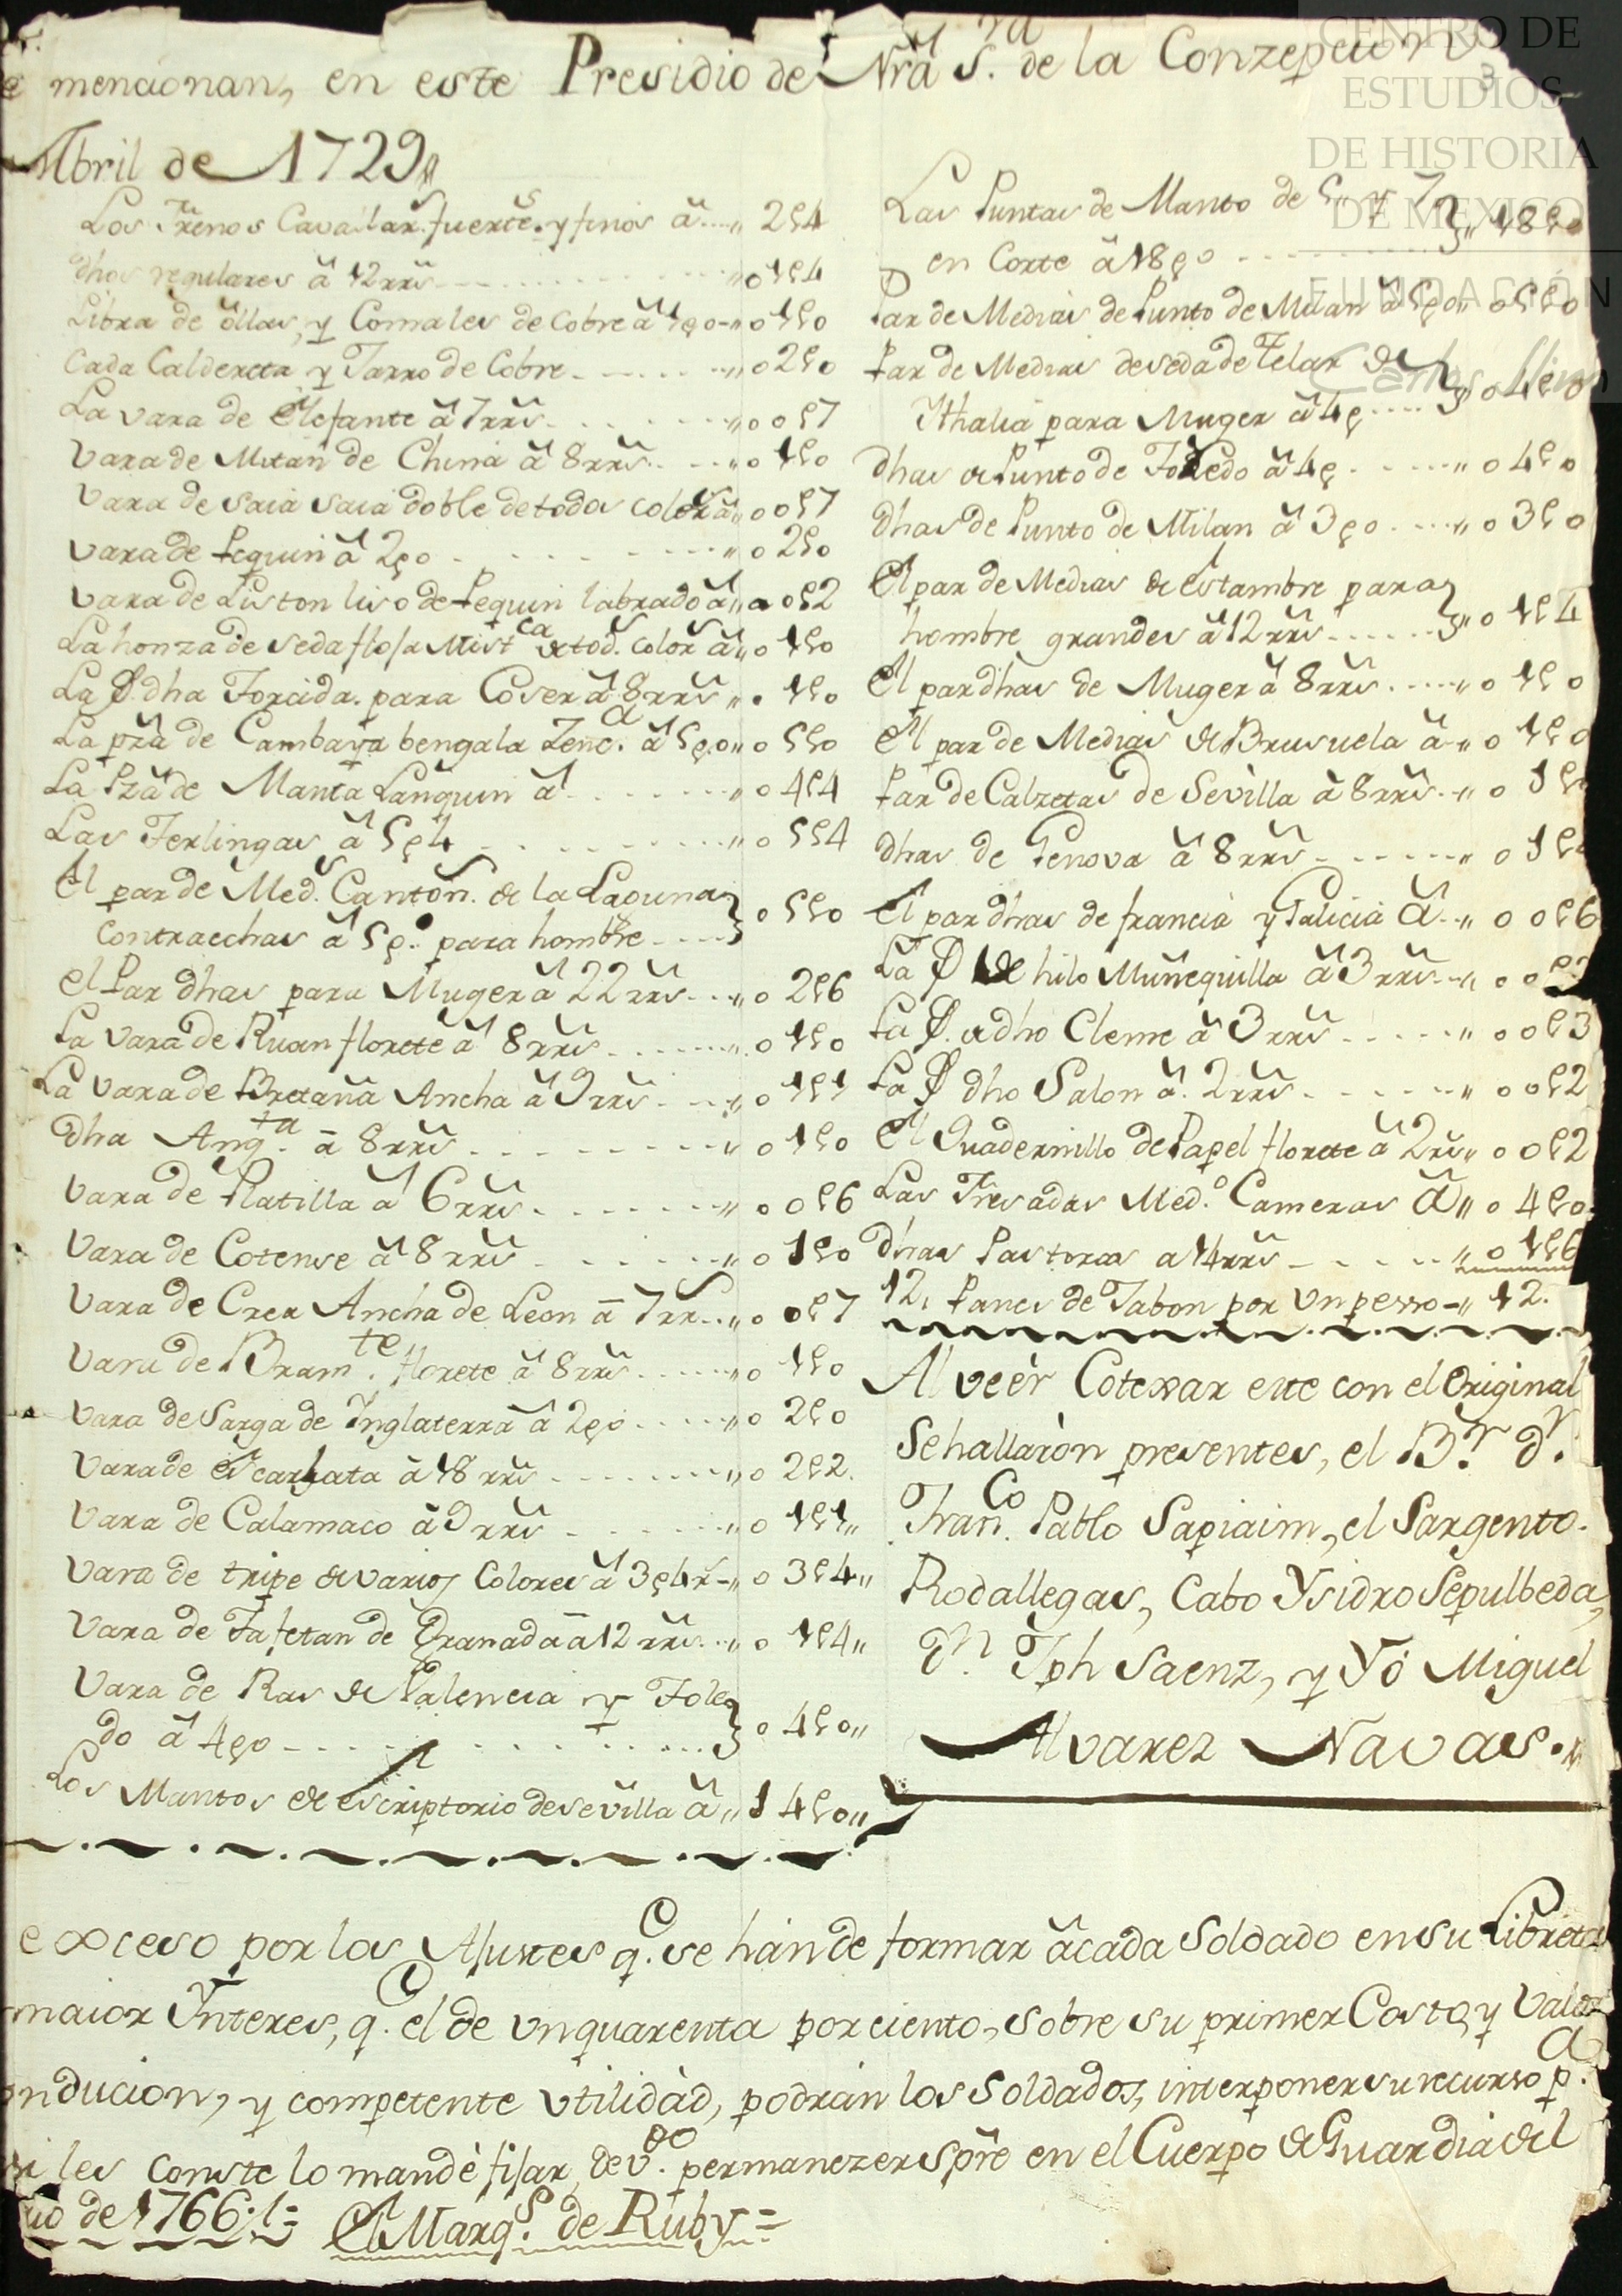 mencionan, en este Presidio de Nrã S.ra de la Conzepcion
Abril de 1729,,
Los Frenos Cavallar.s fuertes. y finos â....,, 2ς4
dhos regulares â 12 rrs..........,, 0 1ς4
Libra de ôllas, y Comales de Cobre â 1ς0-,, 0 1ς0
Cada Caldereta y Jarro de Cobre.......,, 0 2ς0
La vara de Elefante â 7 rrs.......,, 0 0ς7
Vara de Mitan de China â 8 rrs.....,, 0 1ς0
Vara de saia saia doble de todos colors â,, 0 0ς7
Vara de Pequin â 2ς0........,, 0 2ς0
Vara de Liston liso de Pequin labrado â,, 0 0ς2
La honza de seda flosa Mist.ca de tod.s colors â,, 0 1ς0
La dha Torcida. para Coser â 8 rrs,, 0 1ς0
La pzã de Cambaya bengala Zenc.a â 5ς0,, 0 5ς0
La Pzã de Manta Lanquin â.......,, 0 4ς4
Las Terlingas â 5ς4.........,, 0 5ς4
El par de Med.s Canton. de la Laguna
contraechas â 5ς.0 para hombre....} 0 5ς0
el Par dhas para Muger â 22 rrs...,, 0 2ς6
La Vara de Ruan florete â 8 rrs......,, 0 1ς0
La Vara de Bretaña Ancha â 9 rrs...,, 0 1ς1
dha Ang.ta â 8 rrs..........,, 0 1ς0
Vara de Platilla â 6 rrs.......,, 0 0ς6
Vara de Cotense â 8 rrs.......,, 0 1ς0
Vara de Crea Ancha de Leon â 7 rr...,, 0 0ς7
Vara de Bram.te florete â 8 rrs......,, 0 1ς0
Vara de Sarga de Inglaterra â 2ς0.....,, 0 2ς0
Vara de Escarlata â 18 rrs.......,, 0 2ς2.
Vara de Calamaco â 9 rrs......,, 0 1ς1,,
Vara de tripe de varios Colores â 3ς4r-,, 0 3ς4,,
Vara de Tafetan de Granada â 12 rrs..,, 0 1ς4,,
Vara de Ras de Valencia y Tole
do â 4ς0............} 0 4ς0,,
Los Mantos de escriptorio de sevilla â,, 1 4ς0,,
Las Puntas de Manto de
en Corte â 18ς0.........},, 18ς0
Par de Medias de Punto de Milan â 5ς0,, 0 5ς0
Par de Medias de seda de Telar de
Ythalia para Muger â 4ς.....},, 0 4ς0
dhas de Punto de Toledo â 4ς......,, 0 4ς0
dhas de Punto de Milan â 3ς0.....,, 0 3ς0
El par de Medias de estambre para
hombre grandes â 12 rrs......},, 0 1ς4
El par dhas de Muger â 8 rrs.....,, 0 1ς0
El par de Medias de Brusuela â-,, 0 1ς0
Par de Calzetas de Sevilla â 8 rrs..,, 0 1ς0
dhas de Genova â 8 rrs......,, 0 1ς0
El par dhas de francia y Galicia â..,, 0 0ς6
La de hilo Muñequilla â 3 rrs...,, 0 0ς3
La dho Cleme â 3 rrs......,, 0 0ς3
La dho Salon â 2 rrs.......,, 0 0ς2
El Quadernillo de Papel florete â 2 rs,, 0 0ς2
Las Fresadas Med.o Cameras â,, 0 4ς0
dhas Pastoras a 14 rrs.....,, 0 1ς6
12, Panes de Jabon por Un pesso-,, 12.
Al veèr Cotexar este con el Original
Se hallaròn presentes, el B.r d.n
Fran.co Pablo Sapiaim, el Sargento.
Rodallegas, Cabo Ysidro Sepulbeda,
d.n Jph Saenz, y Yò Miguel
Alvarez Navas.
exceso por los Ajustes q.e se han de formar â cada Soldado en su Libreta
maior Ynteres, q.e el de un quarenta por ciento, sobre su primer Costo, y Valor
onducion, y competente utilidàd, podràn los Soldados, interponer su recurso p.a
les conste lo mandè fijar, dev.do permanezer spre en el Cuerpo de Guardia del
de 1766.,=
El Marq.s de Ruby=
CENTRO DE
ESTUDIOS
DE HISTORIA
DE MEXICO
FUNDACIÓN
Carlos Slim